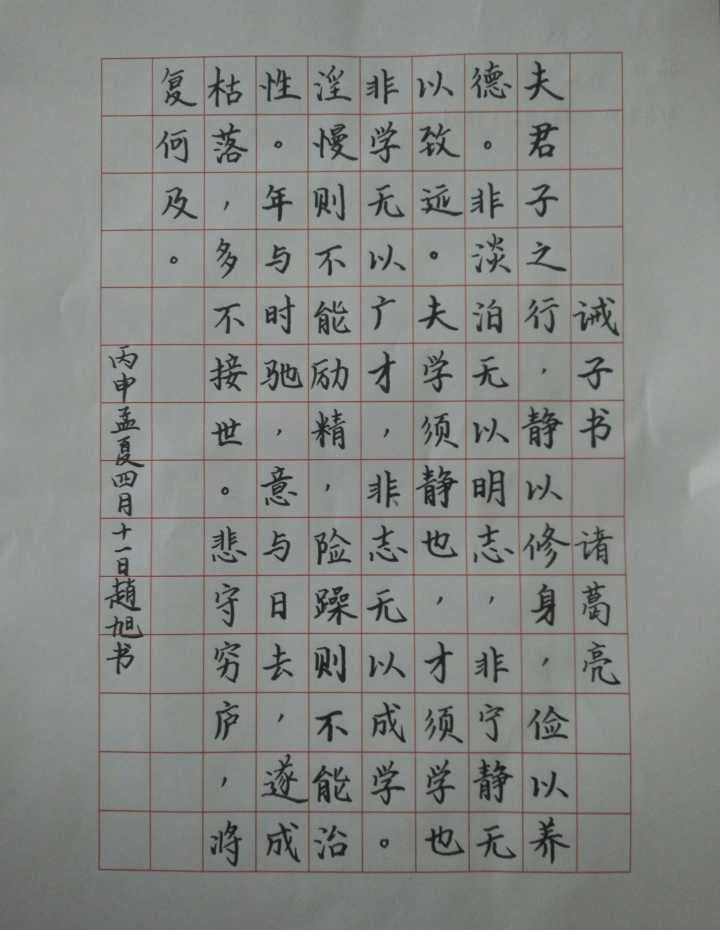 诫子书 诸葛亮
夫君子之行，静以修身，俭以养
德。非淡泊无以明志，非宁静无
以致远。夫学须静也，才须学也
非学无以广才，非志无以成学。
淫慢则不能励精，险躁则不能治
性。年与时驰，意与日去，遂成
枯落，多不接世。悲守穷庐，将
复何及。
丙申孟夏四月十一日赵旭书